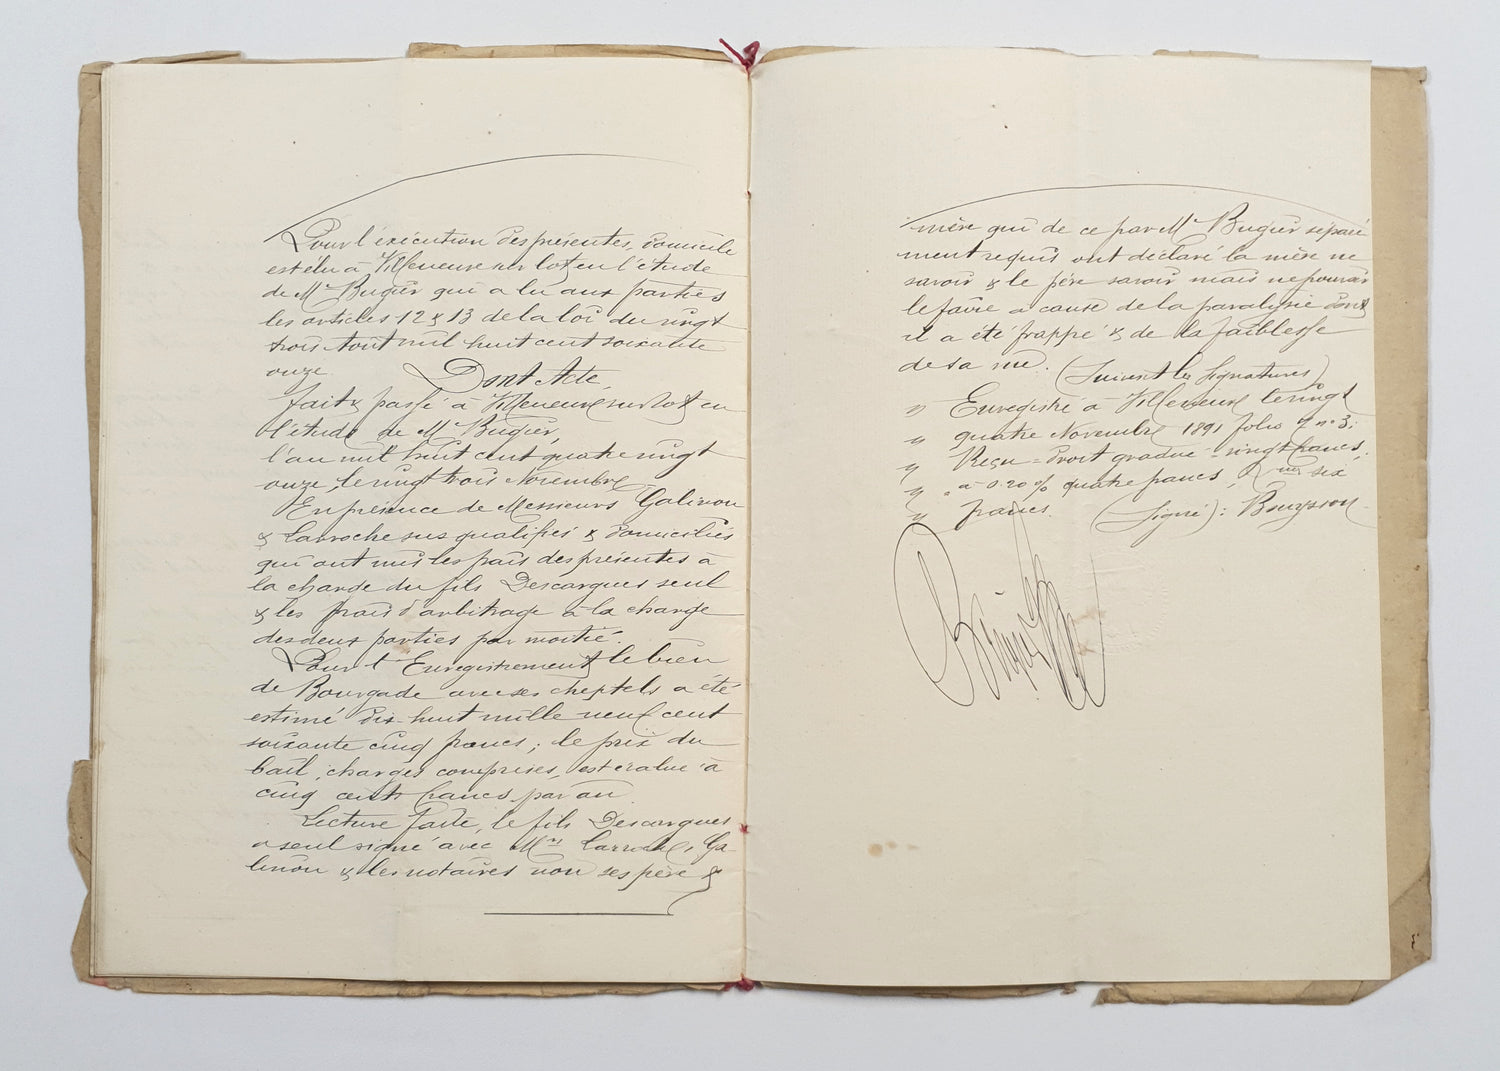 Pour l'exécution des présentes, domicile
est élu à Villeneuve sur Lot en l'étude
de Me Bugier qui a lu aux parties
les articles 12 & 13 de la loi du vingt
trois Août mil huit cent soixante
onze.
Dont Acte,
fait & passé à Villeneuve sur Lot en
l'étude de Me Bugier,
l'an mil huit cent quatre vingt
onze, le vingt trois Novembre
En présence de Messieurs Galinou
& Larroche sus qualifiés & domiciliés
qui ont mis les frais des présentes à
la charge du fils Descargues seul
& les frais d'arbitrage à la charge
des deux parties par moitié.
Pour l'Enregistrement le bien
de Bourgade avec ses cheptels a été
estimé dix-huit mille neuf cent
soixante cinq francs; le prix du
bail, charges comprises, est évalué à
cinq cents francs par an.
Lecture faite, le fils Descargues
a seul signé avec Mrs Larroche, Ga-
linou & les notaires non ses père &
mère qui de ce par Me Bugier séparé
ment requis ont déclaré la mère ne
savoir & le père savoir mais ne pouvoir
le faire à cause de la paralysie dont
il a été frappé & de la faiblesse
de sa vue. (Suivent les signatures)
" Enregistré à Villeneuve le vingt
" quatre Novembre 1891 folio 9 no 3;
" Reçu = droit gradué = vingt francs,
" à 0.20 % quatre francs, six
" francs. (Signé): Bouysson